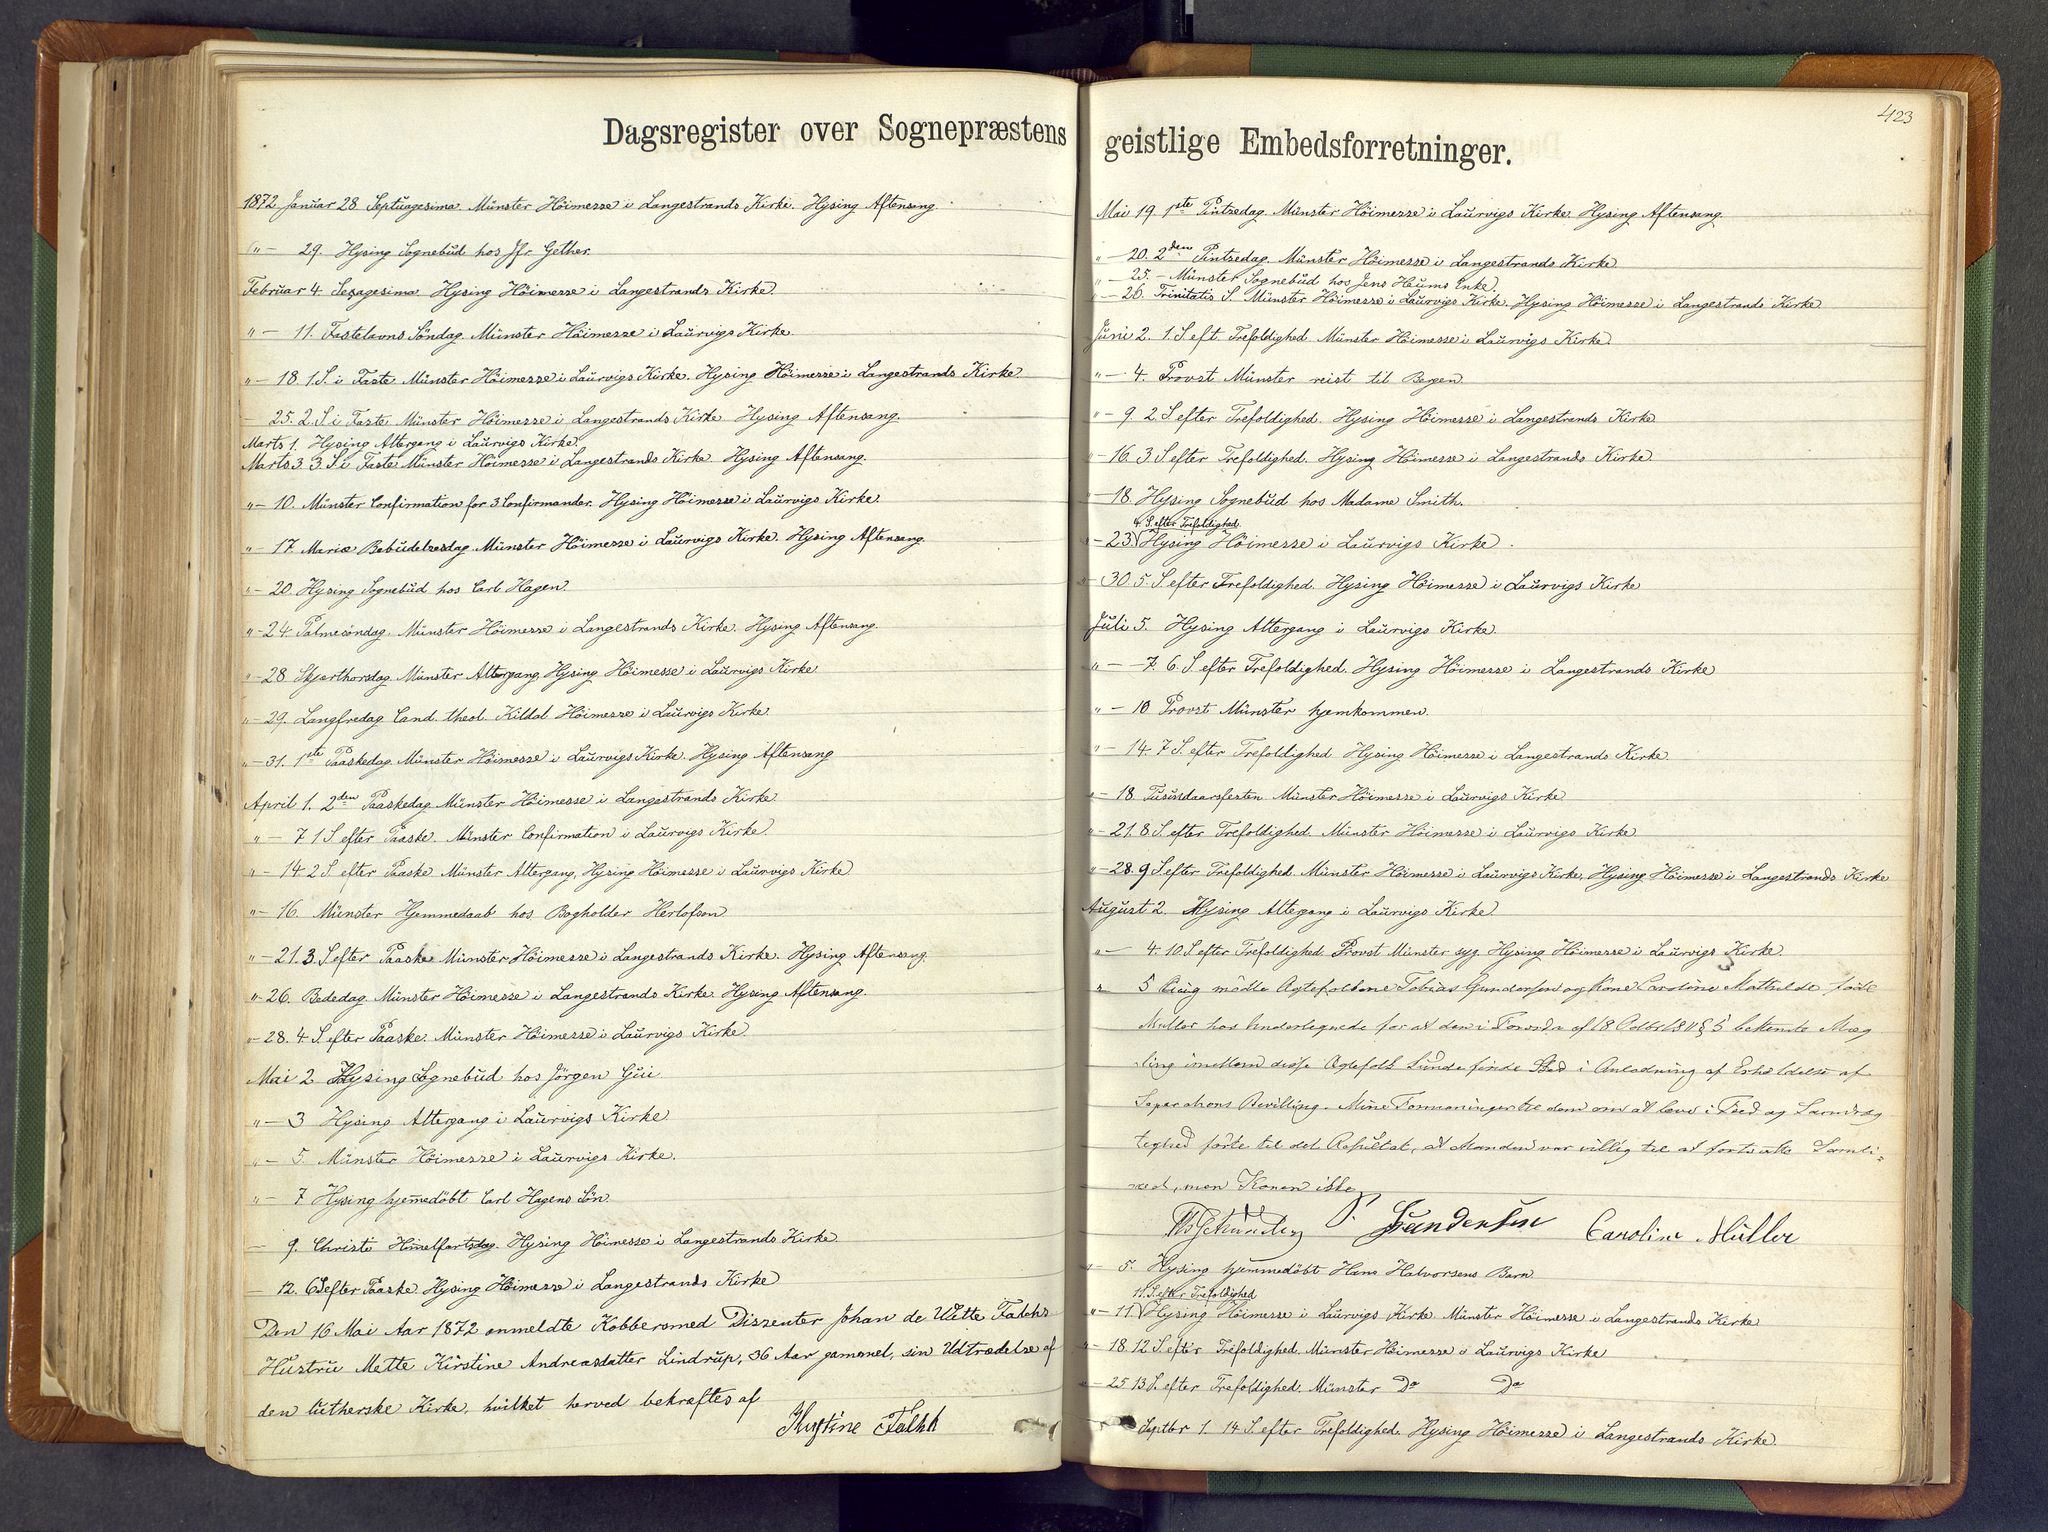 Dagsregister over Sognepræstens
1872 Januar 28 Septuagesima. Münster Höimesse i Langestrands Kirke. Hysing Aftensang.
" — 29. Hysing Sognebüd hos Jfr. Gether.
Februar 4. Sexagesima. Hysing Höimesse i Langestrands Kirke.
" — 11. Fastelavns Söndag. Münster Höimesse i Laürvigs Kirke
" — 18. 1. S. i Faste Münster Höimesse i Laürvigs Kirke. Hysing Höimesse i Langestrands Kirke.
— 25. 2. S i Faste Münster Höimesse i Langestrands Kirke Hysing Aftensang.
Marts 1. Hysing Altergang i Laürvigs Kirke.
Marts 3. 3 S i Faste Münster Höimesse i Langestrands Kirke. Hysing Aftensang.
" — 10. Münster Confirmation for 3 Confirmander. Hysing Höimesse i Laürvigs Kirke
" — 17. Mariæ Bebüdelsesdag. Münster Höimesse i Laürvigs Kirke. Hysing Aftensang.
" — 20. Hysing Sognebüd hos Carl Hagen.
" — 24. Palmesöndag. Münster Höimesse i Langestrands Kirke. Hysing Aftensang.
" — 28. Skjærthorsdag. Münster Altergang, Hysing Höimesse i Laürvigs Kirke
" — 29. Langfredag Cand. theol. Kildal Höimesse i Laürvigs Kirke
" — 31. 1ste Paaskedag. Münster Höimesse i Laürvigs Kirke. Hysing Aftensang
April 1. 2den Paaskedag. Münster Höimesse i Langestrands Kirke.
" — 7 1 S efter Paaske. Münster Confirmation i Laürvigs Kirke.
" — 14. 2 S. efter Paaske Münster Altergang, Hysing Höimesse i Laürvigs Kirke
" — 16. Münster Hjemmedaab hos Bogholder Herlofson
" — 21. 3. S efter Paaske Münster Höimesse i Langestrands Kirke. Hysing Aftensang.
" — 26. Bededag. Münster Höimesse i Langestrands Kirke. Hysing Aftensang.
" — 28. 4. S. efter Paaske. Münster Höimesse i Laürvigs Kirke.
Mai 2. Hysing Sognebüd hos Jörgen Güi
" — 3 Hysing Altergang i Laürvigs Kirke
" — 5. Münster Höimesse i Laürvigs Kirke.
" — 7 Hysing hjemmedöbt Carl Hagens Sön
— 9. Christi Himelfartsdag. Hysing Höimesse i Langestrands Kirke.
— 12. 6 S efter Paaske. Hysing Höimesse i Langestrands Kirke
Den 16 Mai Aar 1872 anmeldte Kobbersmed Dissenter Johan de Wette Falchs
Hüstrü Mette Kirstine Andreasdatter Lindrup, 36 Aar gammel, sin Udtrædelse af
den lütherske Kirke, hvilket herved bekræftes af
Kirstine Falkh
423
geistlige Embedsforretninger.
Mai 19. 1ste Pintsedag. Münster Höimesse i Laürvigs Kirke. Hysing Aftensang.
" — 20. 2den Pintsedag. Münster Höimesse i Langestrands Kirke.
" — 25. — Münster Sognebüd hos Jens Heüms Enke.
" — 26. Trinitatis S. Münster Höimesse i Laürvigs Kirke. Hysing Höimesse i Langestrands Kirke
Juni 2. 1. S. eft. Trefoldighed. Münster Höimesse i Laürvigs Kirke
" — 4. Provst Münster reist til Bergen
" — 9. 2. S efter Trefoldighed. Hysing Höimesse i Langestrands Kirke.
" — 16. 3 S efter Trefoldighed. Hysing Höimesse i Langestrands Kirke
— 18. Hysing Sognebüd hos Madame Smith.
4 S. efter Trefoldighed.
— 23. Hysing Höimesse i Laürvigs Kirke.
" — 30. 5. S. efter Trefoldighed. Hysing Höimesse i Laürvigs Kirke
Juli 5. Hysing Altergang i Laürvigs Kirke.
" — 7. 6. S efter Trefoldighed. Hysing Höimesse i Langestrands Kirke
" — 10 Provst Münster hjemkommen.
" — 14. 7 S. efter Trefoldighed. Hysing Höimesse i Langestrands Kirke.
" — 18. Tusindaarsfesten Münster Höimesse i Laürvigs Kirke
" — 21. 8. S. efter Trefoldighed. Münster Höimesse i Laürvigs Kirke
" — 28. 9 S efter Trefoldighed. Münster Höimesse i Laürvigs Kirke, Hysing Höimesse i Langestrands Kirke
August 2. Hysing Altergang i Laürvigs Kirke.
" — 4. 10. S efter Trefoldighed. Provst Münster syg. Hysing Höimesse i Laürvigs Kirke.
" 5 Aug mödte Ægtefolkene Tobias Gundersen og Kone Caroline Mathilde födt
Müller hos Undertegnede for at den i Forordn af 18 Octbr 1811 § 5 bestemte Mæg
ling imellem disse Ægtefolk kunde finde Sted i Anledning af Erholdelse af
Separations Bevilling. Mine Formaninger til dem om at leve i Fred og Samdræg
tighed förte til det Resultat, at Manden var villig til at fortsætte Samli-
vet, men Konen ikke
T. Gundersen Caroline Müller
" 5. Hysing hjemmedöbt Hans Halvorsens Barn
11. S. efter Trefoldighed
" — 11 Hysing Höimesse i Laürvigs Kirke Münster Höimesse i Langestrands Kirke
" — 18. 12 S efter Trefoldighed. Münster Höimesse i Laürvigs Kirke
" — 25 13 S. efter Trefoldighed. Münster Do Do
Septbr 1. 14 S. efter Trefoldighed. Hysing Höimesse i Langestrands Kirke.